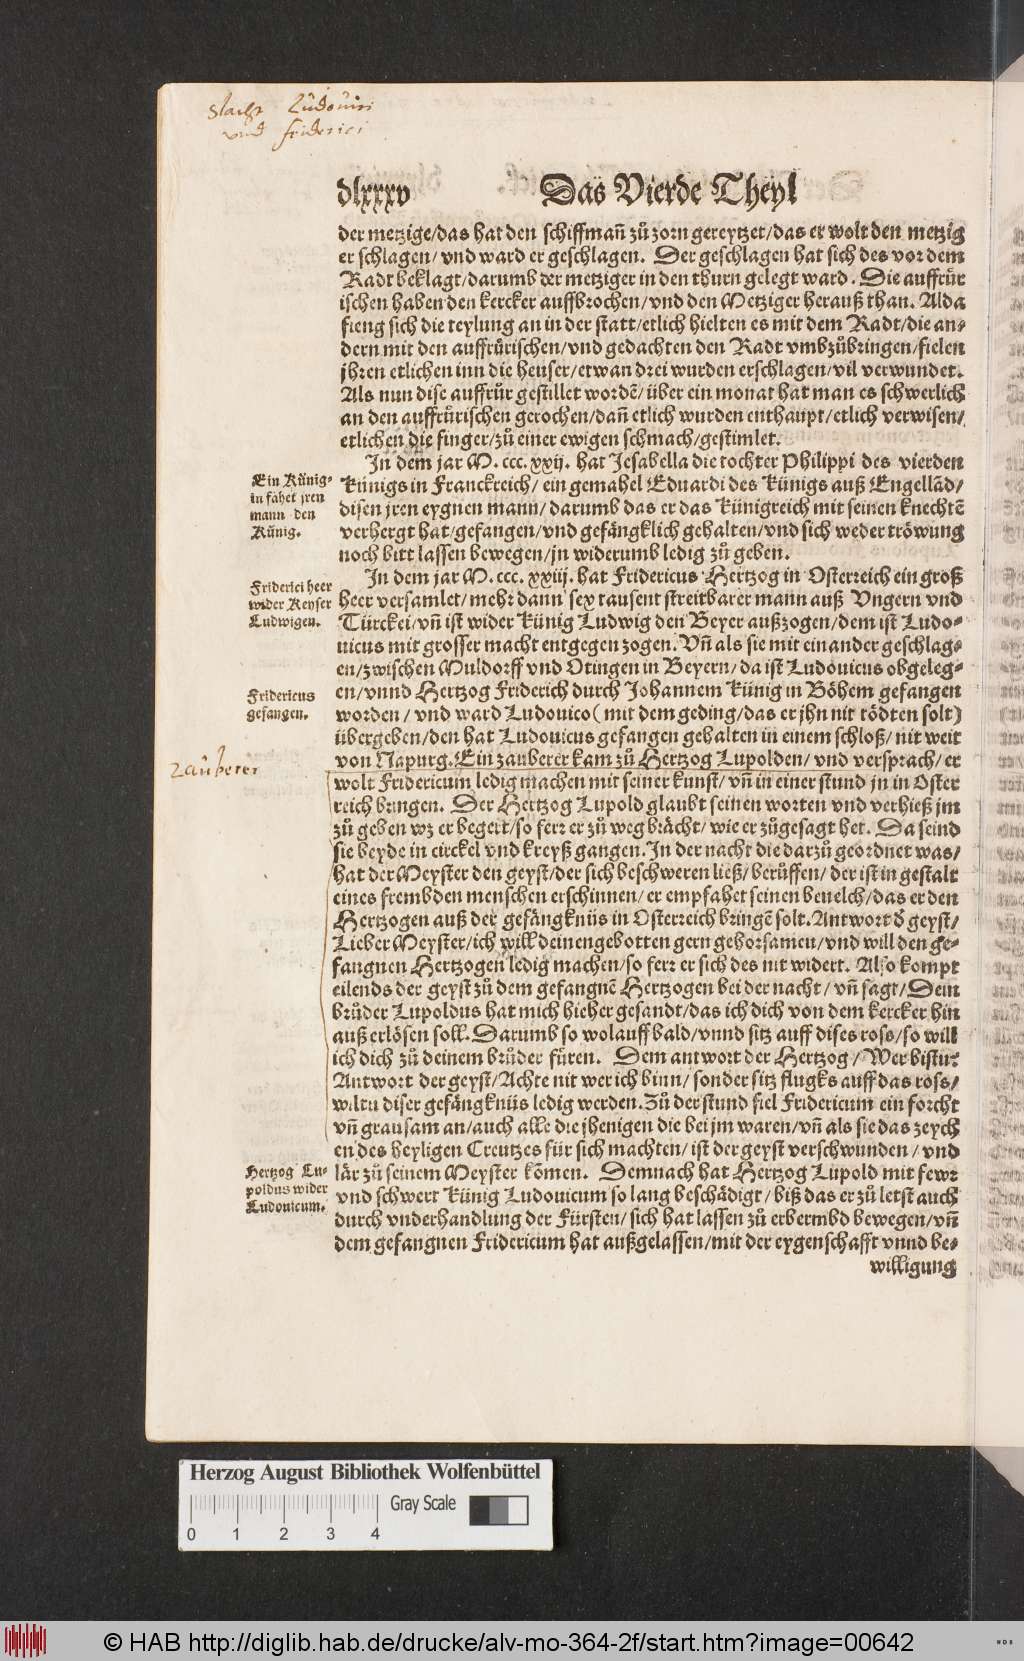 Slacht Ludouici
vnd friderici
dlxxxv Das Vierde Theyl
der metzige/das hat den schiffmañ zů zorn gereytzet/das er wolt den metzig
er schlagen/ vnd ward er geschlagen. Der geschlagen hat sich des vor dem
Radt beklagt/darumb der metziger in den thurn gelegt ward. Die auffrůr
ischen haben den kercker auffbrochen/vnd den Metziger herauß than. Alda
fieng sich die teylung an in der statt/etlich hielten es mit dem Radt/die an-
dern mit den auffrůrischen/vnd gedachten den Radt vmbzůbringen/fielen
jhren etlichen inn die heuser/etwan drei wurden erschlagen/vil verwundet.
Als nun dise auffrůr gestillet wordē/über ein monat hat man es schwerlich
an den auffrůrischen gerochen/dañ etlich wurden enthaupt/etlich verwisen/
etlichen die finger/zů einer ewigen schmach/gestimlet.
In dem jar M. ccc. xxij. hat Jesabella die tochter Philippi des vierden
Künigs in Franckreich/ ein gemahel Eduardi des Künigs auß Engellād/
disen jren eygnen mann/darumb das er das Künigreich mit seinen knechtē
verhergt hat/gefangen/vnd gefängklich gehalten/vnd sich weder tröwung
noch bitt lassen bewegen/jn widerumb ledig zů geben.
Ein Künig-
in fahet jren
mann den
Künig.
In dem jar M. ccc. xxiij. hat Fridericus Hertzog in Osterreich ein groß
heer versamlet/mehr dann sex tausent streitbarer mann auß Vngern vnd
Türckei/vñ ist wider Künig Ludwig den Beyer außzogen/dem ist Ludo-
uicus mit grosser macht entgegen zogen. Vñ als sie mit einander geschlag-
en/zwischen Muldorff vnd Otingen in Beyern/da ist Ludouicus obgeleg-
en/vnnd Hertzog Friderich durch Johannem Künig in Böhem gefangen
worden/ vnd ward Ludouico (mit dem geding/das er jhn nit tödten solt)
übergeben/den hat Ludouicus gefangen gehalten in einem schloß/nit weit
von Napurg. Ein zauberer kam zů Hertzog Lupolden/ vnd versprach/er
wolt Fridericum ledig machen mit seiner kunst/ vñ in einer stund jn in Oster
reich bringen. Der Hertzog Lupold glaubt seinen worten vnd verhieß jm
zů geben wz er begert/so ferr er zů weg brächt/wie er zůgesagt het. Da seind
sie beyde in circkel vnd kreyß gangen. In der nacht die darzů geordnet was/
hat der Meyster den geyst/der sich beschweren ließ/berüffen/ der ist in gestalt
eines frembden menschen erschinnen/ er empfahet seinen beuelch/das er den
Hertzogen auß der gefängknüs in Osterreich bringē solt. Antwort ď geyst/
Lieber Meyster/ich will deinen gebotten gern gehorsamen/vnd will den ge-
fangnen Hertzogen ledig machen/so ferr er sich des nit widert. Also kompt
eilends der geyst zů dem gefangnē Hertzogen bei der nacht/ vñ sagt/Dein
brůder Lupoldus hat mich hieher gesandt/das ich dich von dem kercker hin
auß erlösen soll. Darumb so wolauff bald/vnnd sitz auff dises ross/so will
ich dich zů deinem brůder füren. Dem antwort der Hertzog/ Wer bistu?
Antwort der geyst/Achte nit wer ich binn/sonder sitz flugks auff das ross/
wiltu diser gefängknüs ledig werden. Zů der stund fiel Fridericum ein forcht
vñ grausam an/auch alle die jhenigen die bei jm waren/vñ als sie das zeych
en des heyligen Creutzes für sich machten/ist der geyst verschwunden/ vnd
lär zů seinem Meyster kōmen. Demnach hat Hertzog Lupold mit fewr
vnd schwert Künig Ludouicum so lang beschädigt/biß das er zů letst auch
durch vnderhandlung der Fürsten/sich hat lassen zů erbermbd bewegen/vñ
dem gefangnen Fridericum hat außgelassen/mit der eygenschafft vnnd be-
willigung
Friderici heer
wider Keyser
Ludwigen.
Fridericus
gefangen.
Zauberer
Hertzog Lu-
poldus wider
Ludouicum.
Herzog August Bibliothek Wolfenbüttel
Gray Scale
0 1 2 3 4
© HAB http://diglib.hab.de/drucke/alv-mo-364-2f/start.htm?image=00642